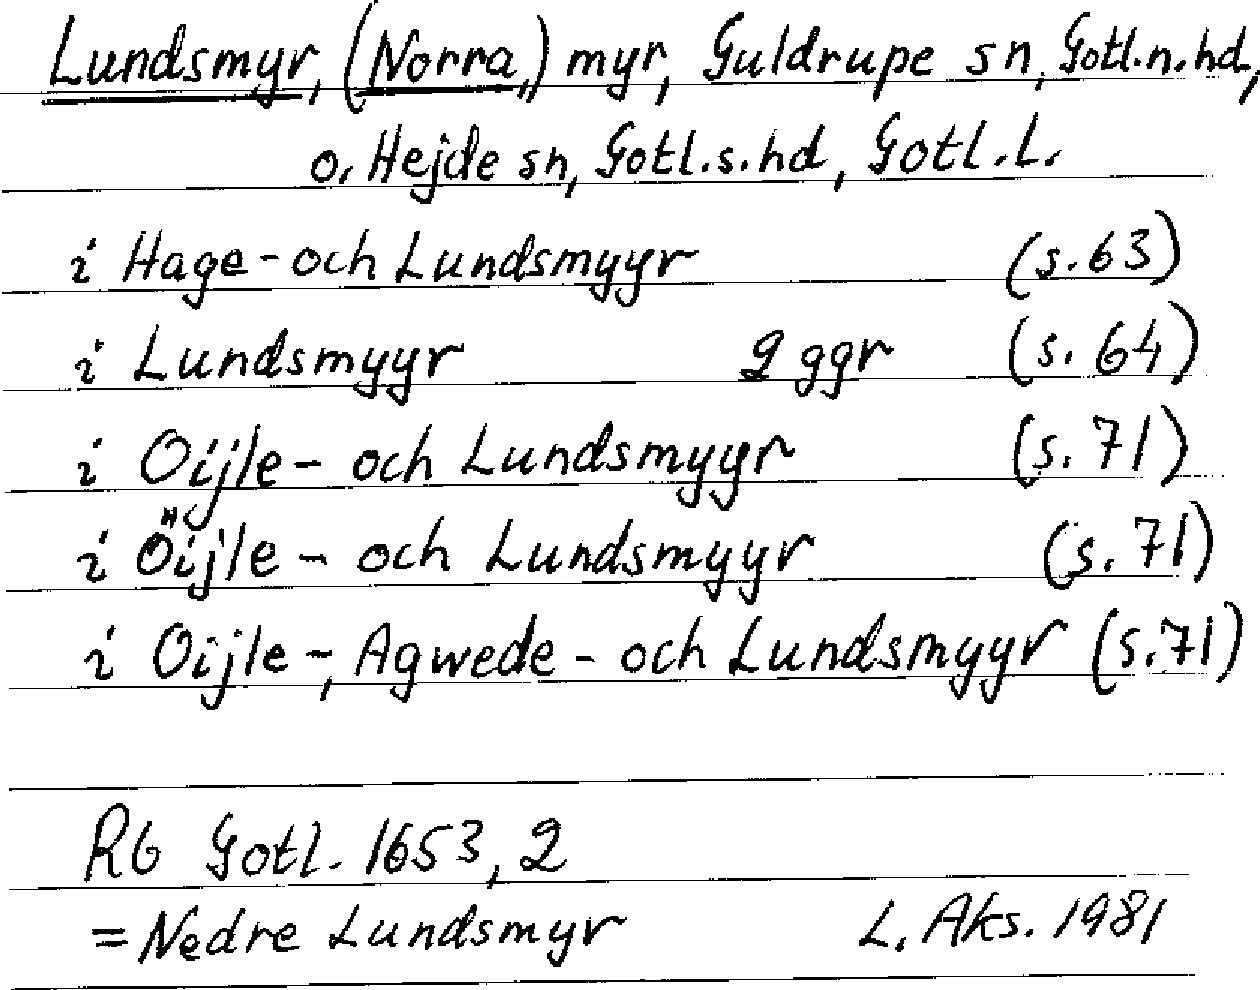 Lundsmyr, (Norra,) myr, Guldrupe sn, Gotl.n.hd,
o. Hejde sn, Gotl.s.hd, Gotl.L.
i Hage- och Lundsmyyr (s.63)
i Lundsmyyr 2 ggr (s.64)
i Oijle- och Lundsmyyr (s.71)
i Öijle- och Lundsmyyr (s.71)
i Oijle-, Agwede- och Lundsmyyr (s.71)
Rb Gotl. 1653, 2
= Nedre Lundsmyr L. Aks. 1981